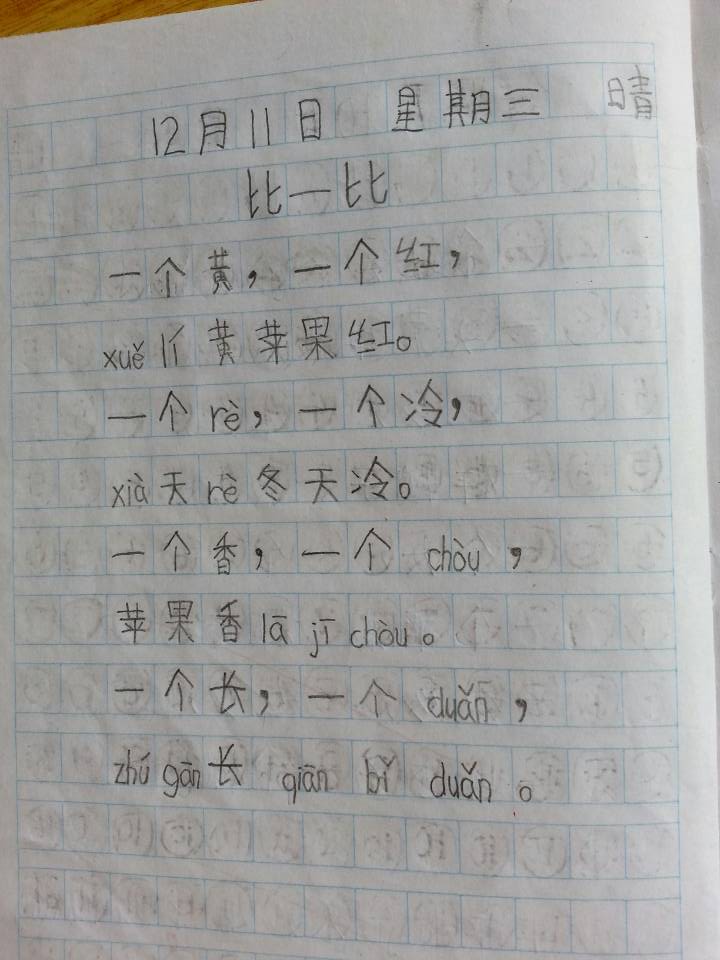 12月11日 星期三 晴
比一比
一个黄，一个红，
xuě lí 黄苹果红。
一个rè，一个冷，
xià天rè冬天冷。
一个香，一个 chòu，
苹果香lā jī chòu。
一个长，一个 duǎn，
zhú gān长 qiān bǐ duǎn。